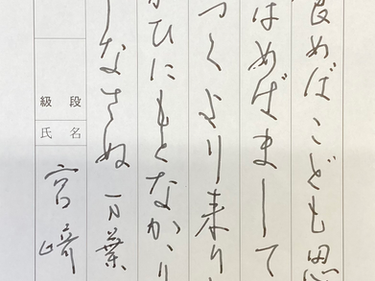 食めばこども思
はめばまして
つくより来り
かひにもとなかゝり
しなさぬ 万葉
段級
氏名
宮﨑